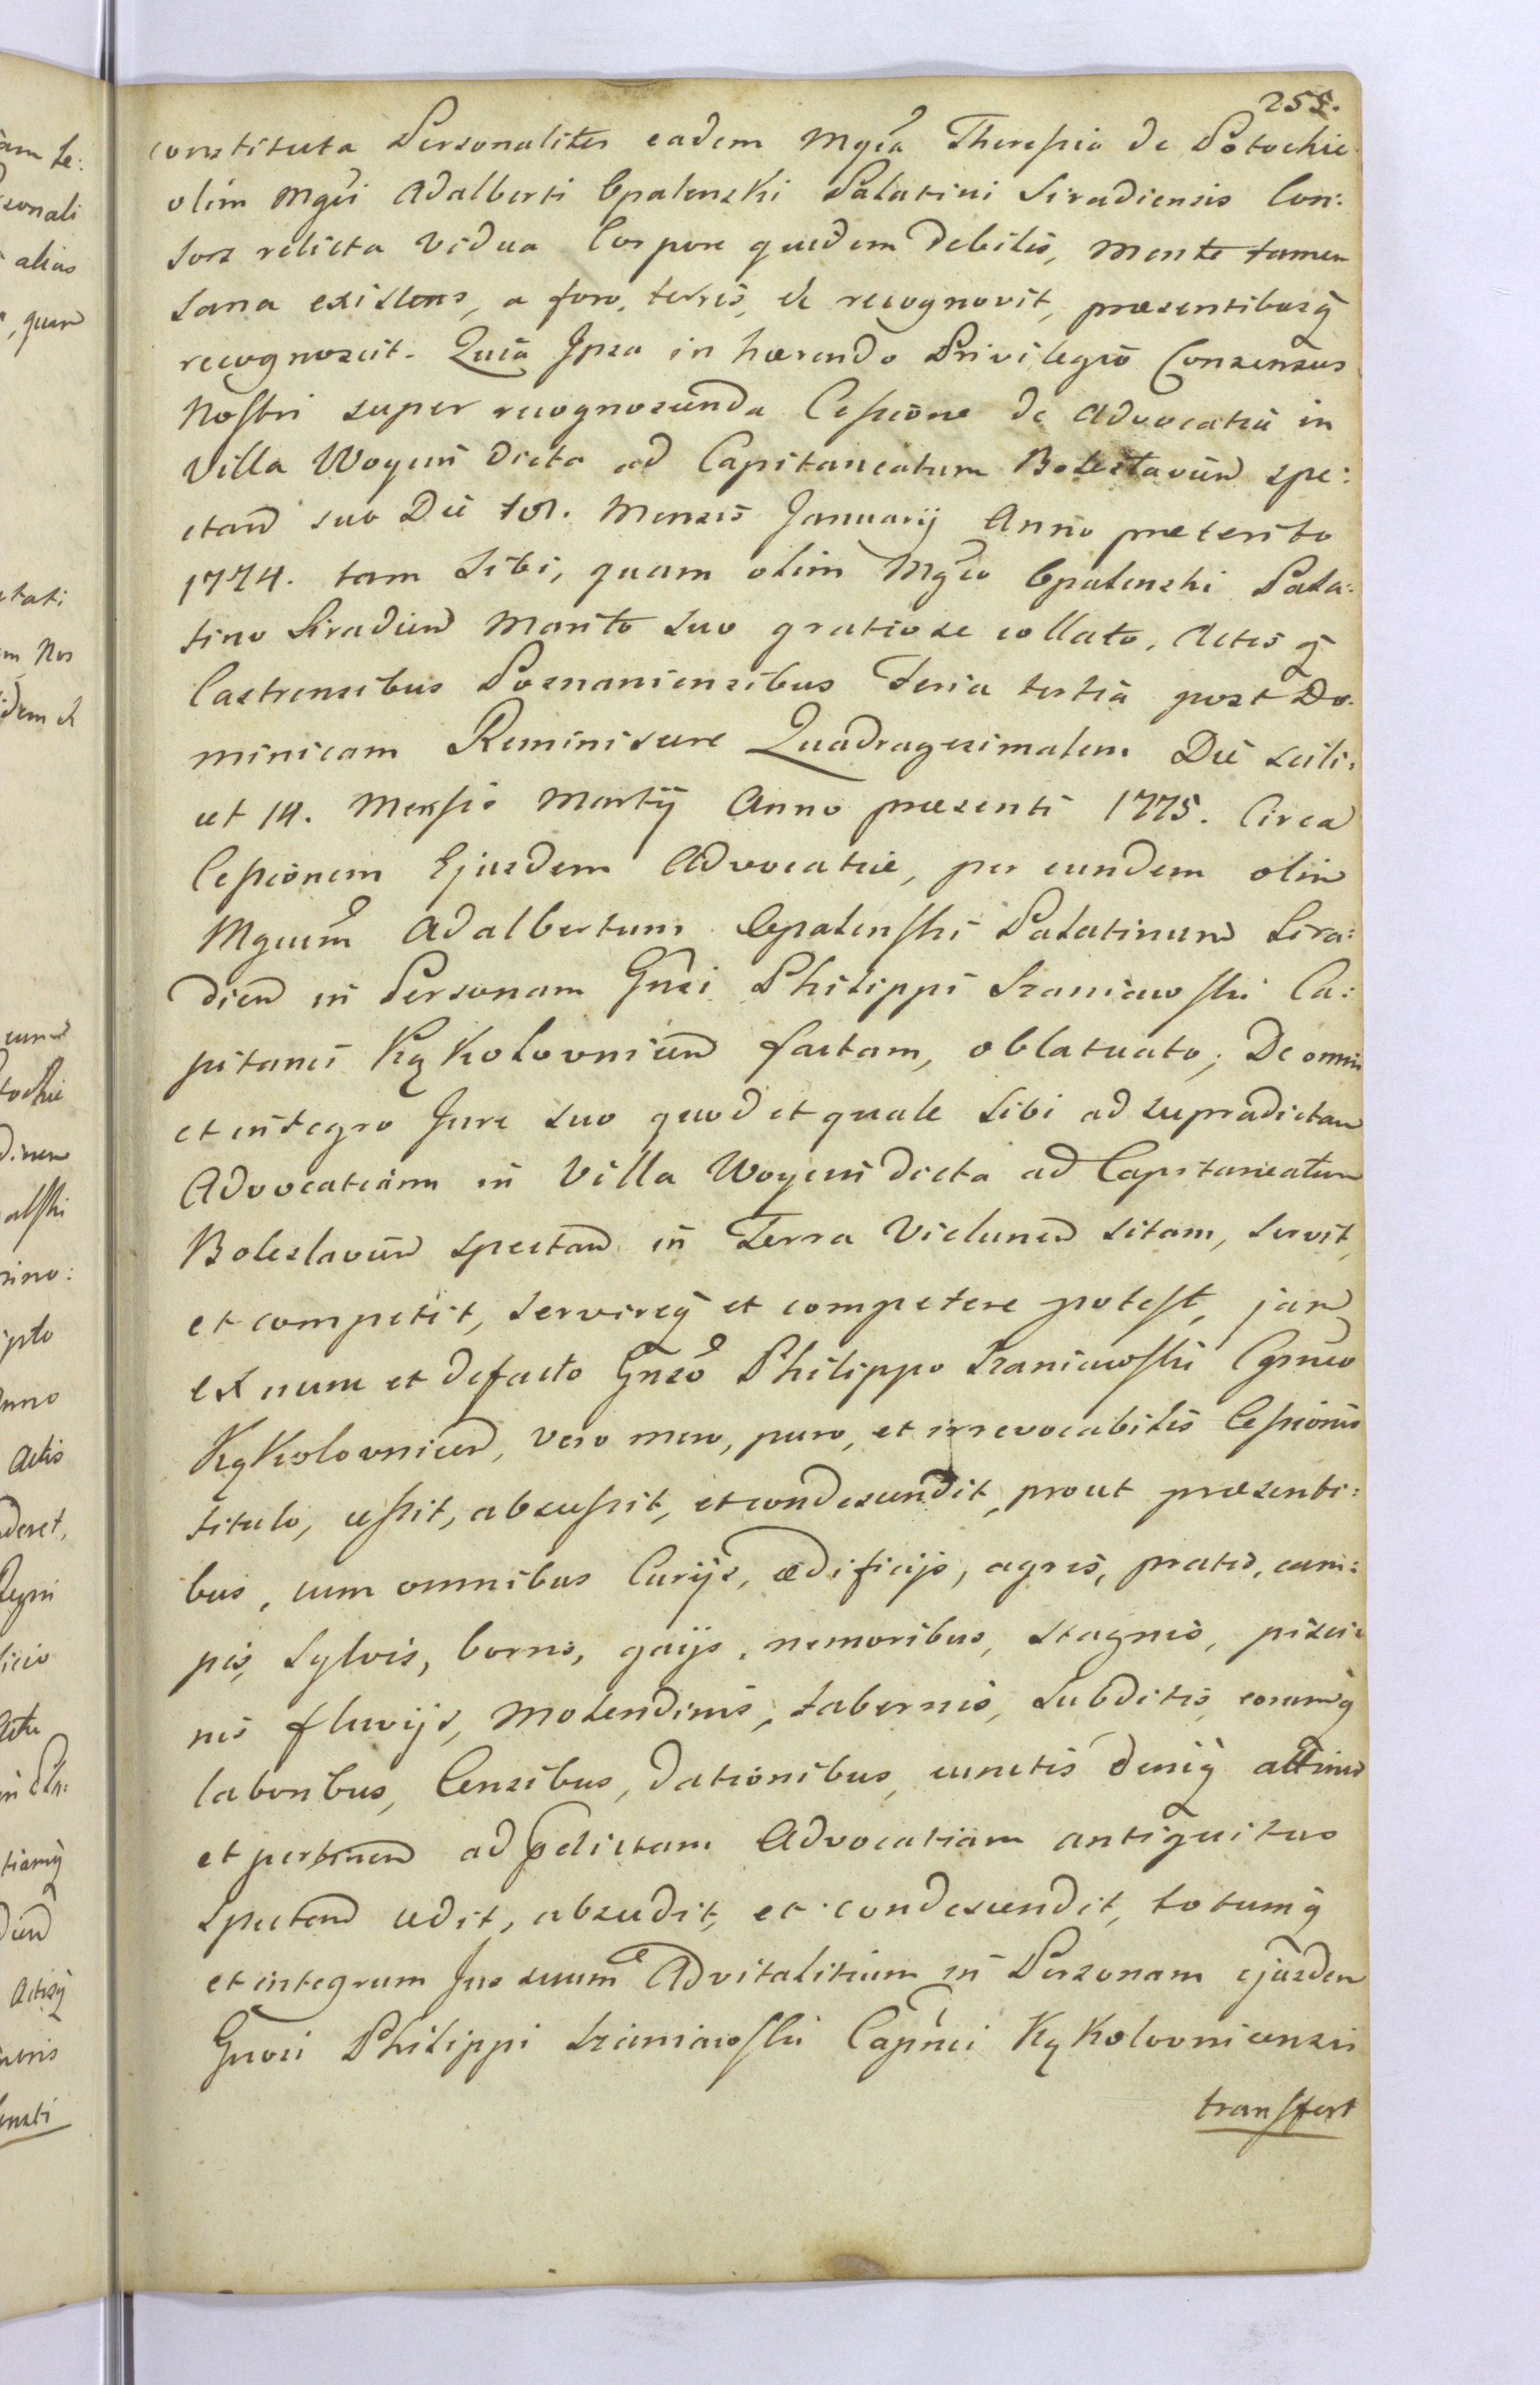 255.
constituta Personaliter eadem Mgca Theressia de Potockie
olim Mgci Adalberti Opalenski Palatini Siradiensis Con:
sors relicta Vidua Corpore quidem debilis, Mente tamen
sana existens, a foro, terris, et recognovit, praesentibusq
recognoscit. Quia Ipsa in haerendo Privilegio Consensus
Nostri super recognoscenda Cessione de Advocatia in
Villa Woycin dicta ad Capitaneatum Boleslavien spe:
ctan sub Die Mensis Januarij Anno praeterito
1774. tam Sibi, quam olim Mgco Opalenski Pala:
tino Siradien Marito suo gratiose collato, Actis q
Castrensibus Posnaniensibus Feria tertia post Do:
minicam Reminiscere Quadragesimalem Die scili:
cet 14. Mensis Martij Anno praesenti 1775. Circa
Cessionem Ejusdem Advocatiae, per eundem olim
Mgcum Adalbertum Opalenski Palatinum Sira:
dien in Personam Gnsi Philippi Szaniawski Ca:
pitanei Kąkolovnicen factam, oblatuato; De omni
et integro Jure suo quod et quale Sibi ad supradictam
Advocatiam in Villa Woycin dicta ad Capitaneatum
Boleslavien spectan in Terra Vielunen sitam, servit,
et competit, servireq et competere potest, jam
ex nunc et defacto Gnso Philippo Szaniawski Cpneo
Kąkolovnicen, vero mero, puro, et irrevocabilis Cessionis
titulo, cessit, abscessit, et condescendit, prout praesenti:
bus, cum omnibus Curijs, aedificijs, agris, pratis, cam:
pis, Sylvis, borris, gaijs, nemoribus, stagnis, pisci:
nis fluvijs, Molendinis, tabernis, Subditis, eorumq
laboribus, Censibus, dationibus, cunctis deniq attinen
et pertinen ad pdictam Advocatiam antiquitus
Spectan cedit, abscedit, et condescendit, totumq
et integrum Jus suum Advitalitium in Personam ejusdem
Gnosi Philippi Szaniawski Capnei Kąkolovnicensis
transfert